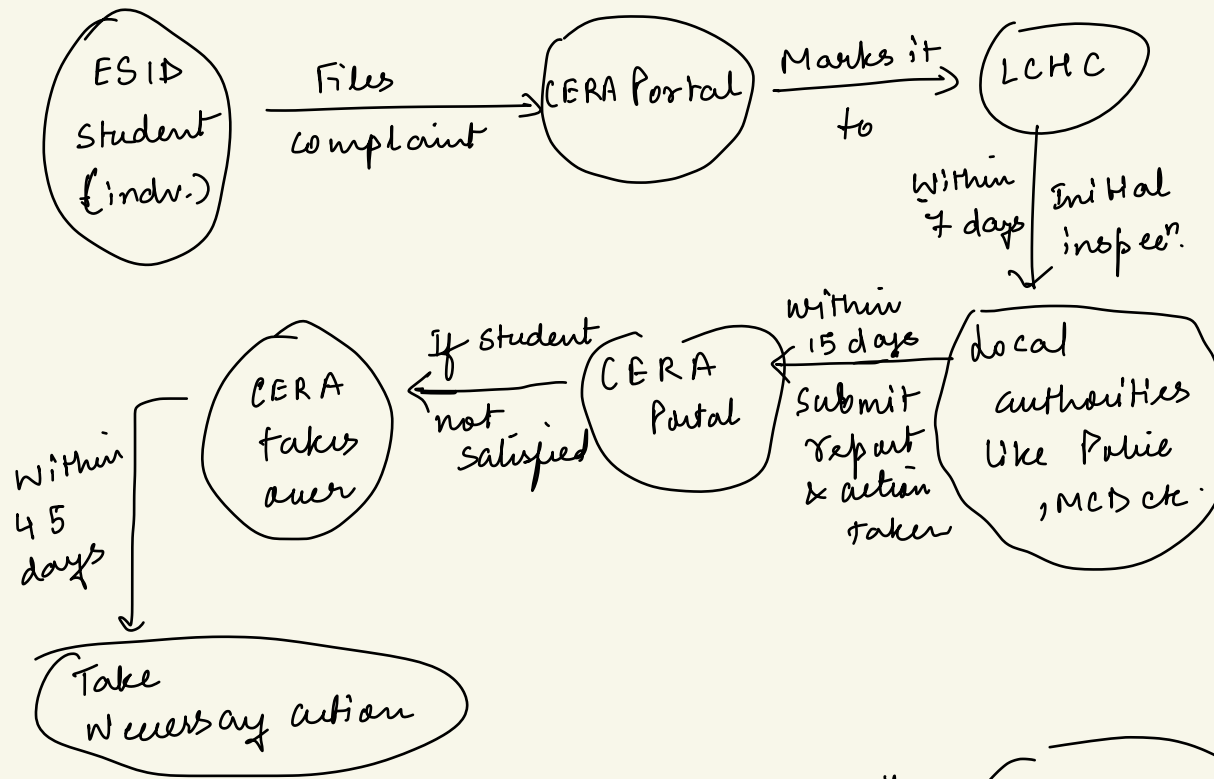 ESID
Student
(indv.)
Files
complaint
CERA Portal
Marks it
to
LCHC
Within
7 days
Initial
inspecn.
Local
authorities
like Police
, MCD etc.
Within
15 days
Submit
report
& action
taken
CERA
Portal
If student
not
satisfied
CERA
takes
over
Within
45
days
Take
Necessary action